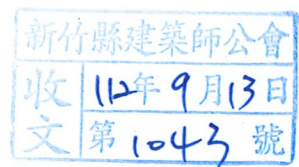 新竹縣建築師公會
收文
112年9月13日
第1043號